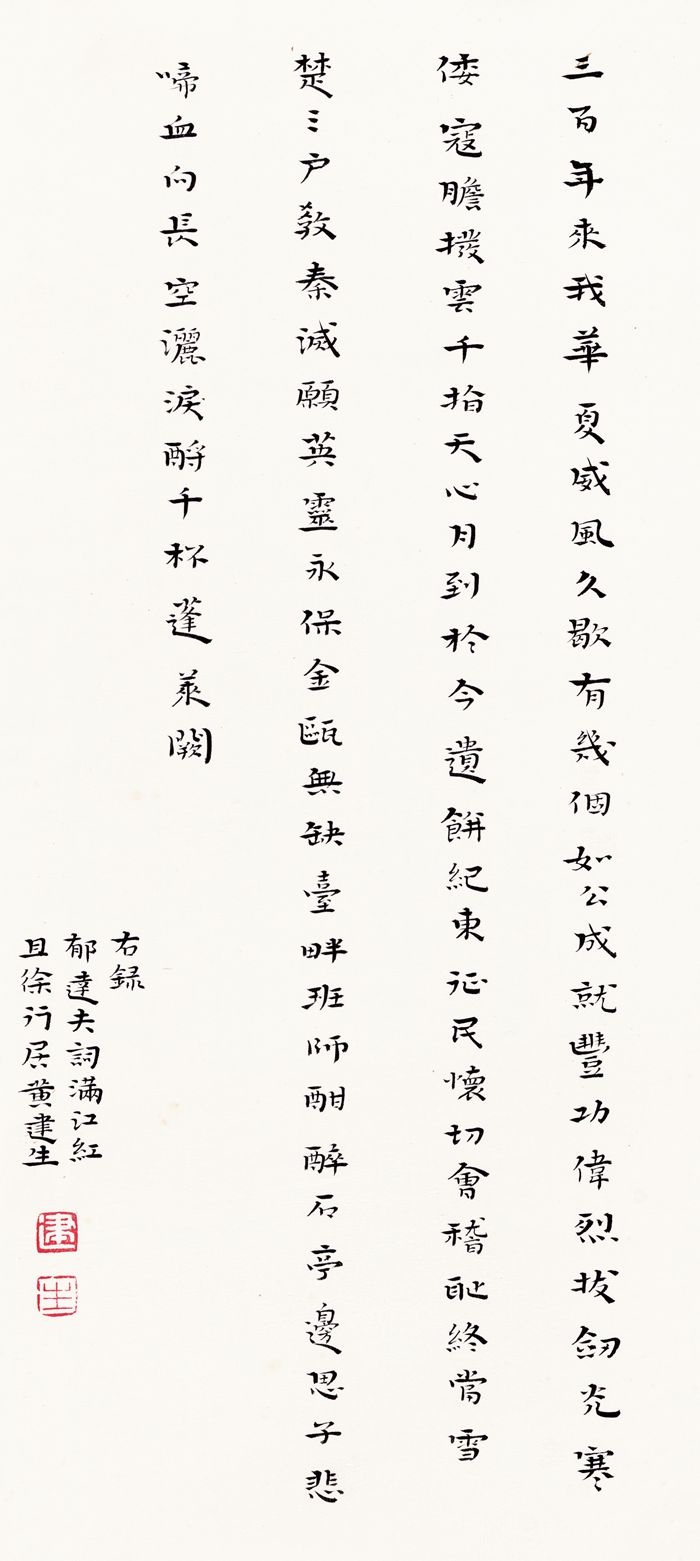 三百年來我華夏威風久歇有幾個如公成就豐功偉烈拔劒光寒
倭寇膽撥雲千指天心月到於今遺餅紀東征民懷切會稽恥終當雪
楚三户教秦滅願英靈永保金甌無缺臺畔班師酣醉石亭邊思子悲
啼血向長空灑淚酹千杯蓬萊闕
右録
郁達夫詞滿江紅
且徐行居黄建生
建
生